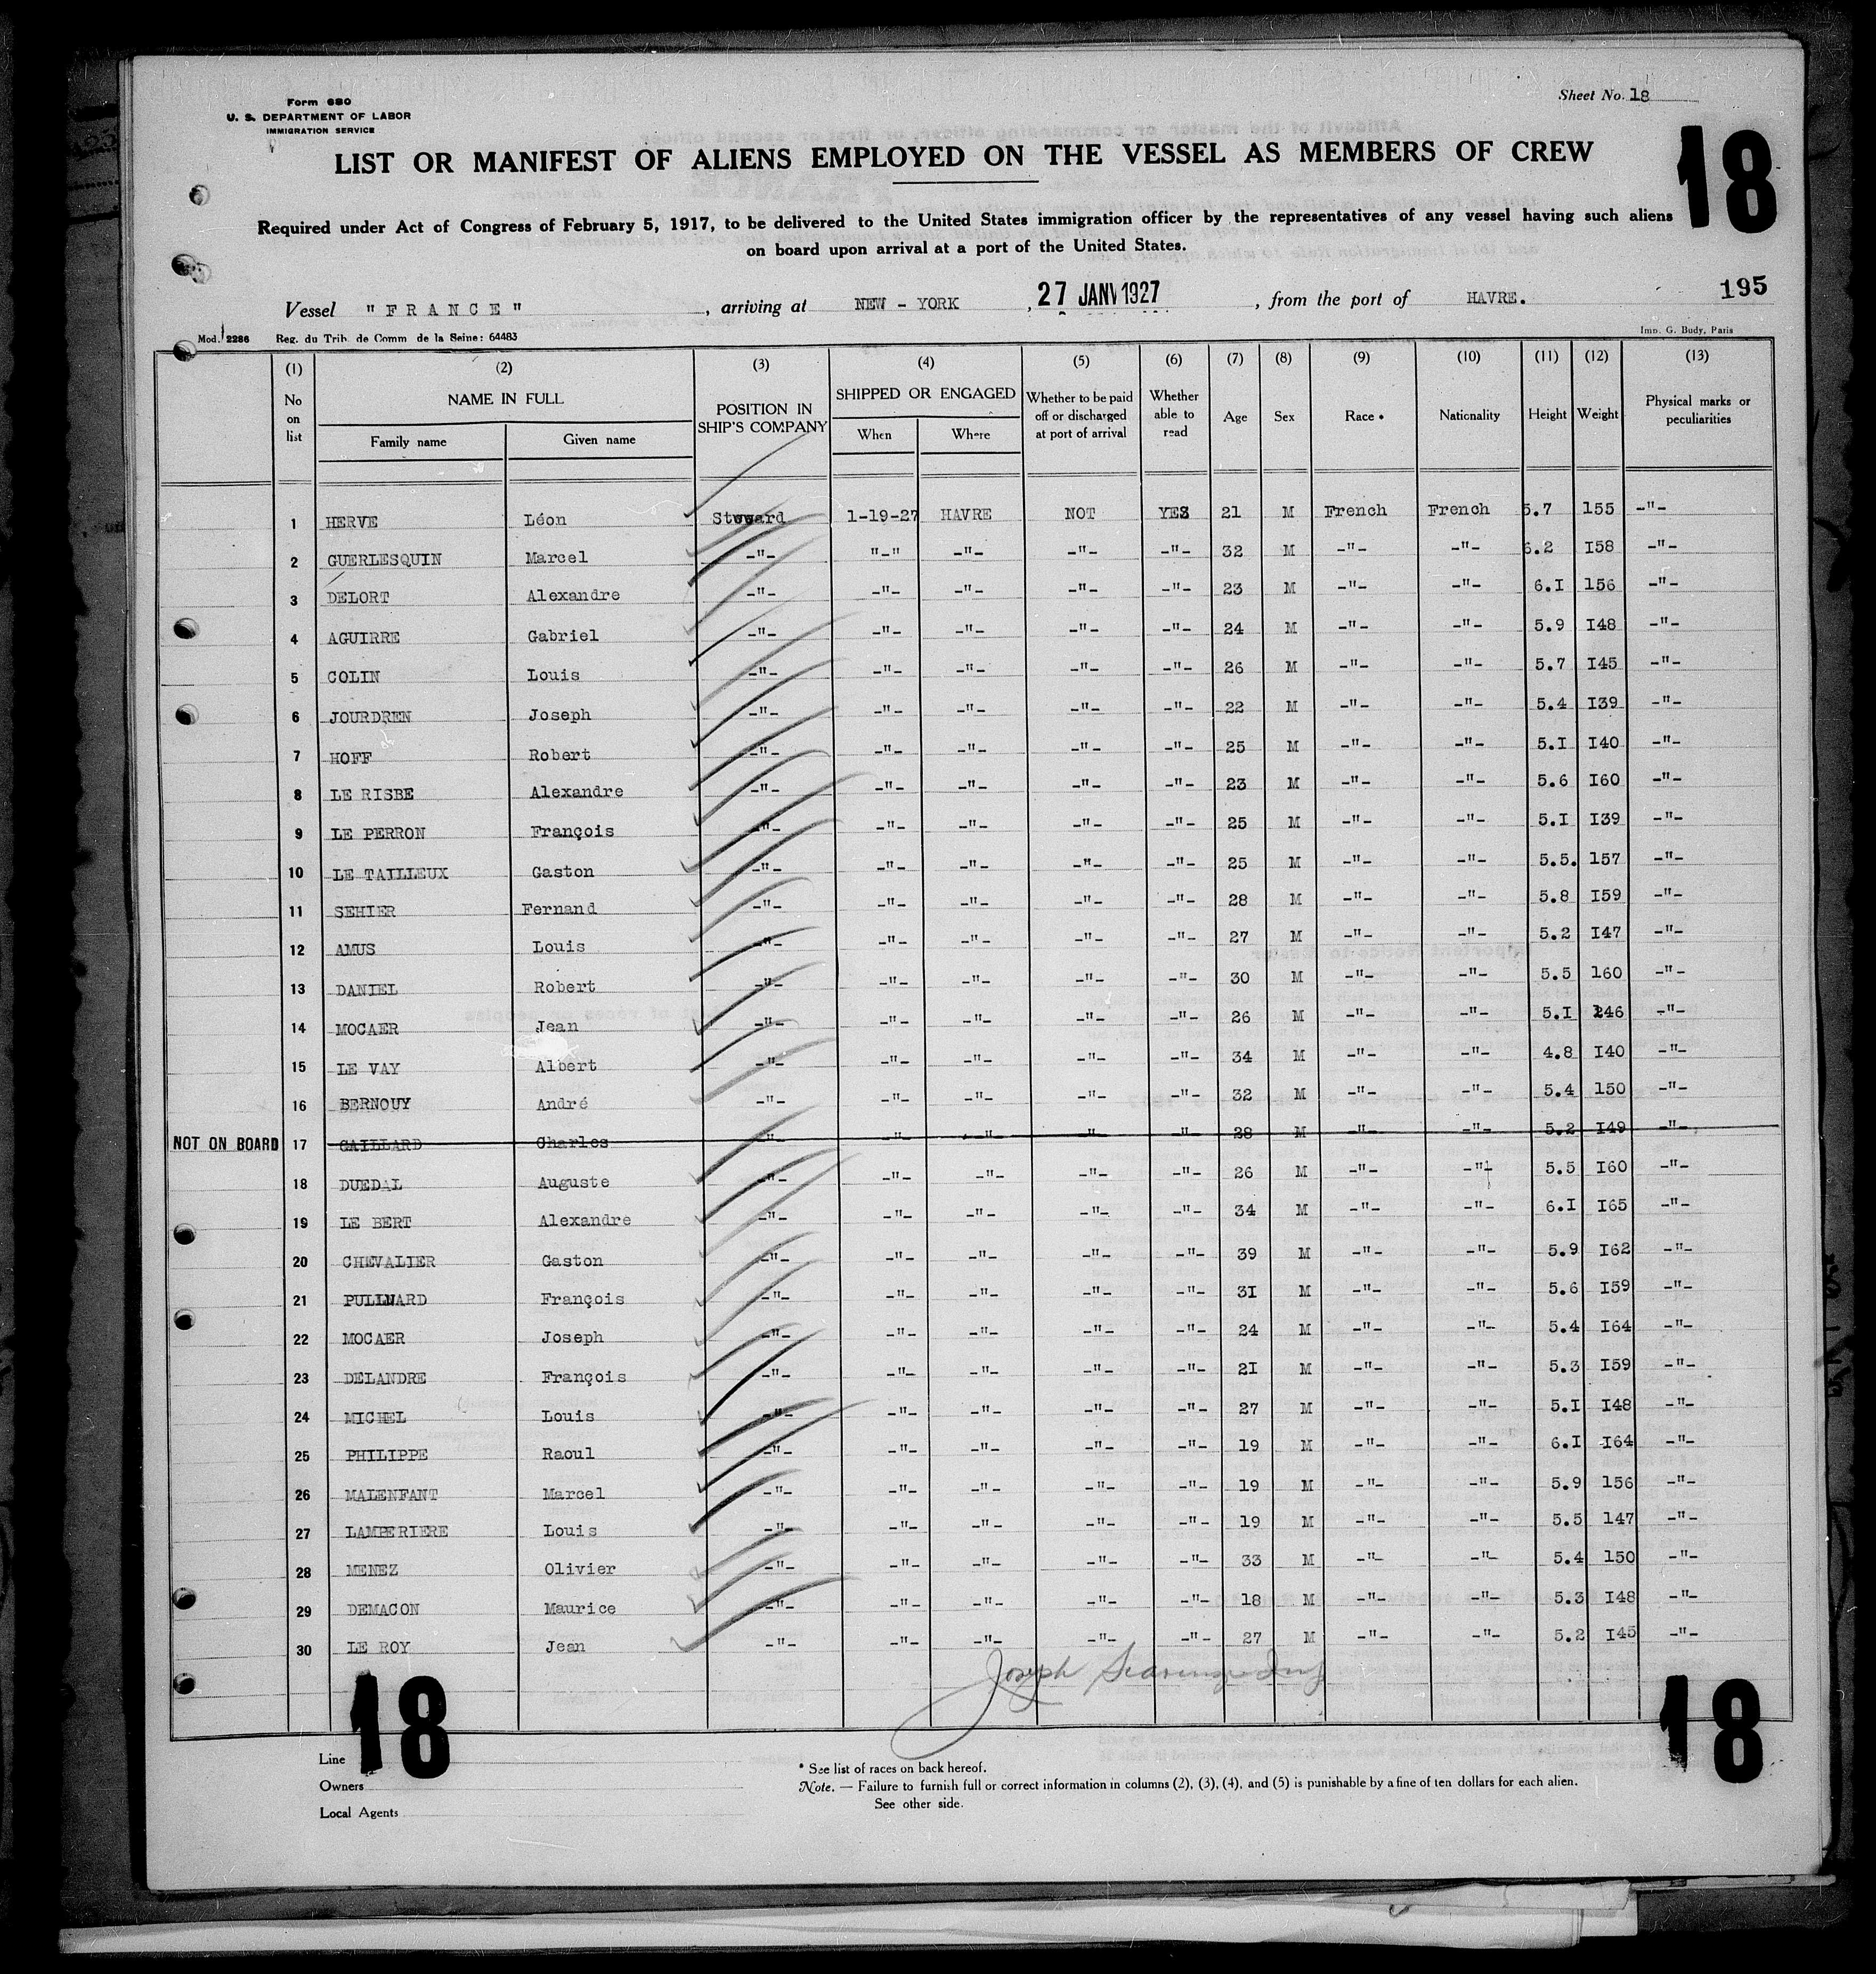 Form 680
U. S. DEPARTMENT OF LABOR
IMMIGRATION SERVICE
Sheet No. 18
LIST OR MANIFEST OF ALIENS EMPLOYED ON THE VESSEL AS MEMBERS OF CREW
18
Required under Act of Congress of February 5, 1917, to be delivered to the United States immigration officer by the representatives of any vessel having such aliens
on board upon arrival at a port of the United States.
195
Vessel "FRANCE", arriving at NEW - YORK, 27 JANV 1927, from the port of HAVRE.
Mod. 2286 Reg. du Trib. de Comm de la Seine: 64483 Imp. G. Budy, Paris
(1) (2) (3) (4) (5) (6) (7) (8) (9) (10) (11) (12) (13)
No on list NAME IN FULL Family name Given name POSITION IN SHIP'S COMPANY SHIPPED OR ENGAGED When Where Whether to be paid off or discharged at port of arrival Whether able to read Age Sex Race * Nationality Height Weight Physical marks or peculiarities
1 HERVE Léon Steward 1-19-27 HAVRE NOT YES 21 M French French 5.7 155 -"-
2 GUERLESQUIN Marcel -"- "-" -"- -"- -"- 32 M -"- -"- 6.2 I58 -"-
3 DELORT Alexandre -"- -"- -"- -"- -"- 23 M -"- -"- 6.I 156 -"-
4 AGUIRRE Gabriel -"- -"- -"- -"- -"- 24 M -"- -"- 5.9 I48 -"-
5 COLIN Louis -"- -"- -"- -"- -"- 26 M -"- -"- 5.7 I45 -"-
6 JOURDREN Joseph -"- -"- -"- -"- -"- 22 M -"- -"- 5.4 I39 -"-
7 HOFF Robert -"- -"- -"- -"- -"- 25 M -"- -"- 5.I I40 -"-
8 LE RISBE Alexandre -"- -"- -"- -"- -"- 23 M -"- -"- 5.6 I60 -"-
9 LE PERRON François -"- -"- -"- -"- -"- 25 M -"- -"- 5.I I39 -"-
10 LE TAILLEUX Gaston -"- -"- -"- -"- -"- 25 M -"- -"- 5.5. 157 -"-
11 SEHIER Fernand -"- -"- -"- -"- -"- 28 M -"- -"- 5.8 I59 -"-
12 AMUS Louis -"- -"- -"- -"- -"- 27 M -"- -"- 5.2 I47 -"-
13 DANIEL Robert -"- -"- -"- -"- -"- 30 M -"- -"- 5.5 160 -"-
14 MOCAER Jean -"- -"- -"- -"- -"- 26 M -"- -"- 5.I 246 -"-
15 LE VAY Albert -"- -"- -"- -"- -"- 34 M -"- -"- 4.8 I40 -"-
16 BERNOUY André -"- -"- -"- -"- -"- 32 M -"- -"- 5.4 150 -"-
NOT ON BOARD 17 GAILLARD Charles -"- -"- -"- -"- -"- 28 M -"- -"- 5.2 I49 -"-
18 DUEDAL Auguste -"- -"- -"- -"- -"- 26 M -"- -"- 5.5 I60 -"-
19 LE BERT Alexandre -"- -"- -"- -"- -"- 34 M -"- -"- 6.I I65 -"-
20 CHEVALIER Gaston -"- -"- -"- -"- -"- 39 M -"- -"- 5.9 I62 -"-
21 PULLNARD François -"- -"- -"- -"- -"- 3I M -"- -"- 5.6 I59 -"-
22 MOCAER Joseph -"- -"- -"- -"- -"- 24 M -"- -"- 5.4 I64 -"-
23 DELANDRE François -"- -"- -"- -"- -"- 2I M -"- -"- 5.3 I59 -"-
24 MICHEL Louis -"- -"- -"- -"- -"- 27 M -"- -"- 5.I I48 -"-
25 PHILIPPE Raoul -"- -"- -"- -"- -"- 19 M -"- -"- 6.I I64 -"-
26 MALENFANT Marcel -"- -"- -"- -"- -"- 19 M -"- -"- 5.9 156 -"-
27 LAMPERIERE Louis -"- -"- -"- -"- -"- 19 M -"- -"- 5.5 147 -"-
28 MENEZ Olivier -"- -"- -"- -"- -"- 33 M -"- -"- 5.4 150 -"-
29 DEMACON Maurice -"- -"- -"- -"- -"- 18 M -"- -"- 5.3 I48 -"-
30 LE ROY Jean -"- -"- -"- -"- -"- 27 M -"- -"- 5.2 I45 -"-
Joseph
18 18
Line
Owners
Local Agents
* See list of races on back hereof.
Note. — Failure to furnish full or correct information in columns (2), (3), (4), and (5) is punishable by a fine of ten dollars for each alien.
See other side.